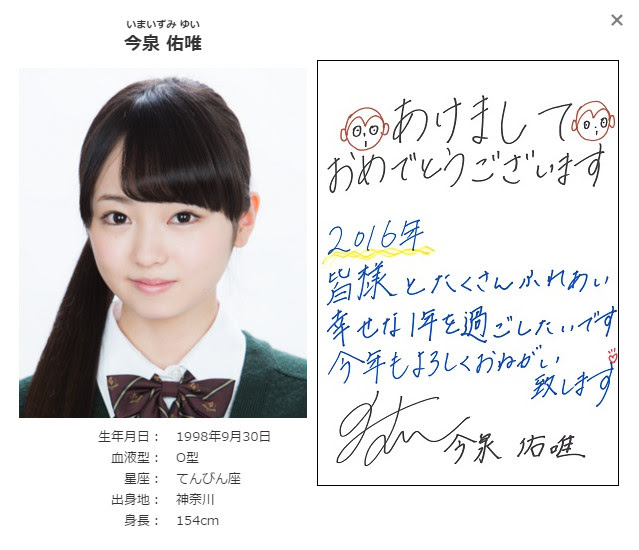 いまいずみ ゆい
今泉 佑唯
生年月日： 1998年9月30日
血液型： O型
星座： てんびん座
出身地： 神奈川
身長： 154cm
あけまして
おめでとうございます
2016年
皆様とたくさんふれあい
幸せな1年を過ごしたいです
今年もよろしくおねがい
致します
今泉 佑唯